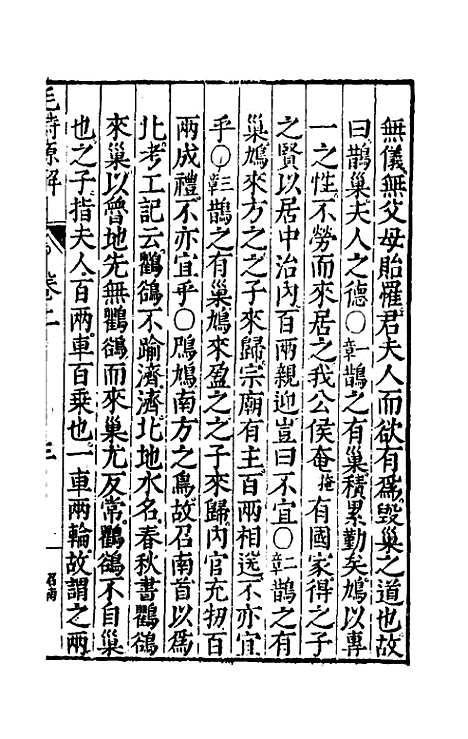 無儀無父母貽罹君夫人而欲有為毀巢之道也故
曰鵲巢夫人之德〇章一鵲之有巢積累勤矣鳩以專
一之性不勞而來居之我公侯奄掩有國家得之子
之賢以居中治內百兩親迎豈曰不宜〇章二鵲之有
巢鳩來方之之子來歸宗廟有主百兩相送不亦宜
乎〇章三鵲之有巢鳩來盈之之子來歸內官充牣百
兩成禮不亦宜乎〇鳲鳩南方之鳥故召南首以為
北考工記云鸜鵒不踰濟濟北地水名春秋書鸜鵒
來巢以魯地先無鸜鵒而來巢尤反常鸜鵒不自巢
也之子指夫人百兩車百乘也一車兩輪故謂之兩
毛詩原解
卷二
三
召南